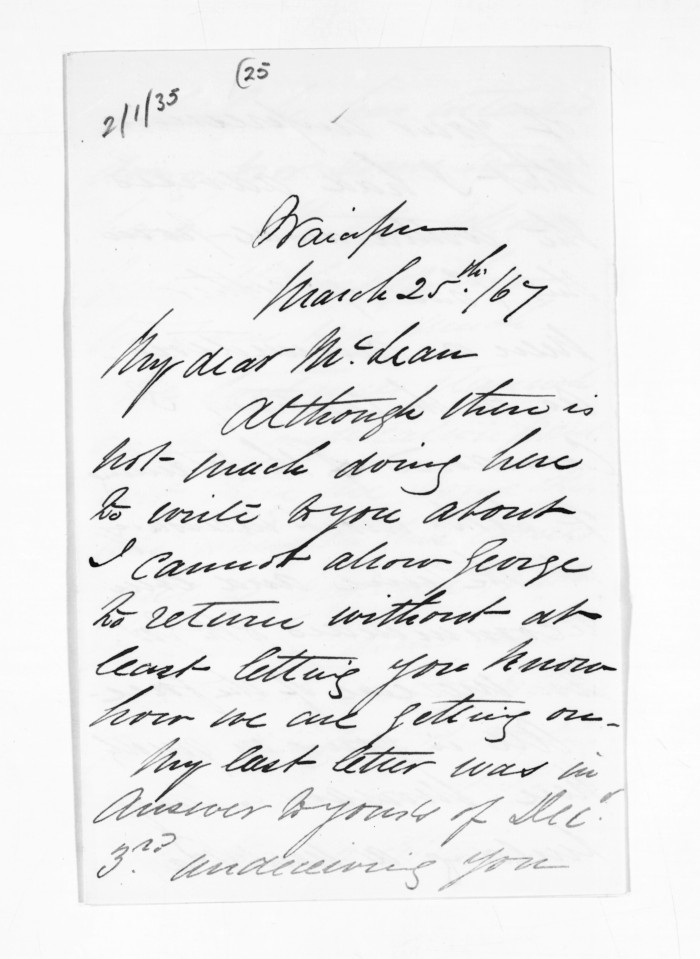 (25
2/1/35
Waiapu
March 25th. /67
My dear McLean
Although there is
not much doing here
to write to you about
I cannot allow George
to return without at
least letting you know
how we are getting on -
My last letter was in
answer to yours of Decr.
3rd. undeceiving you